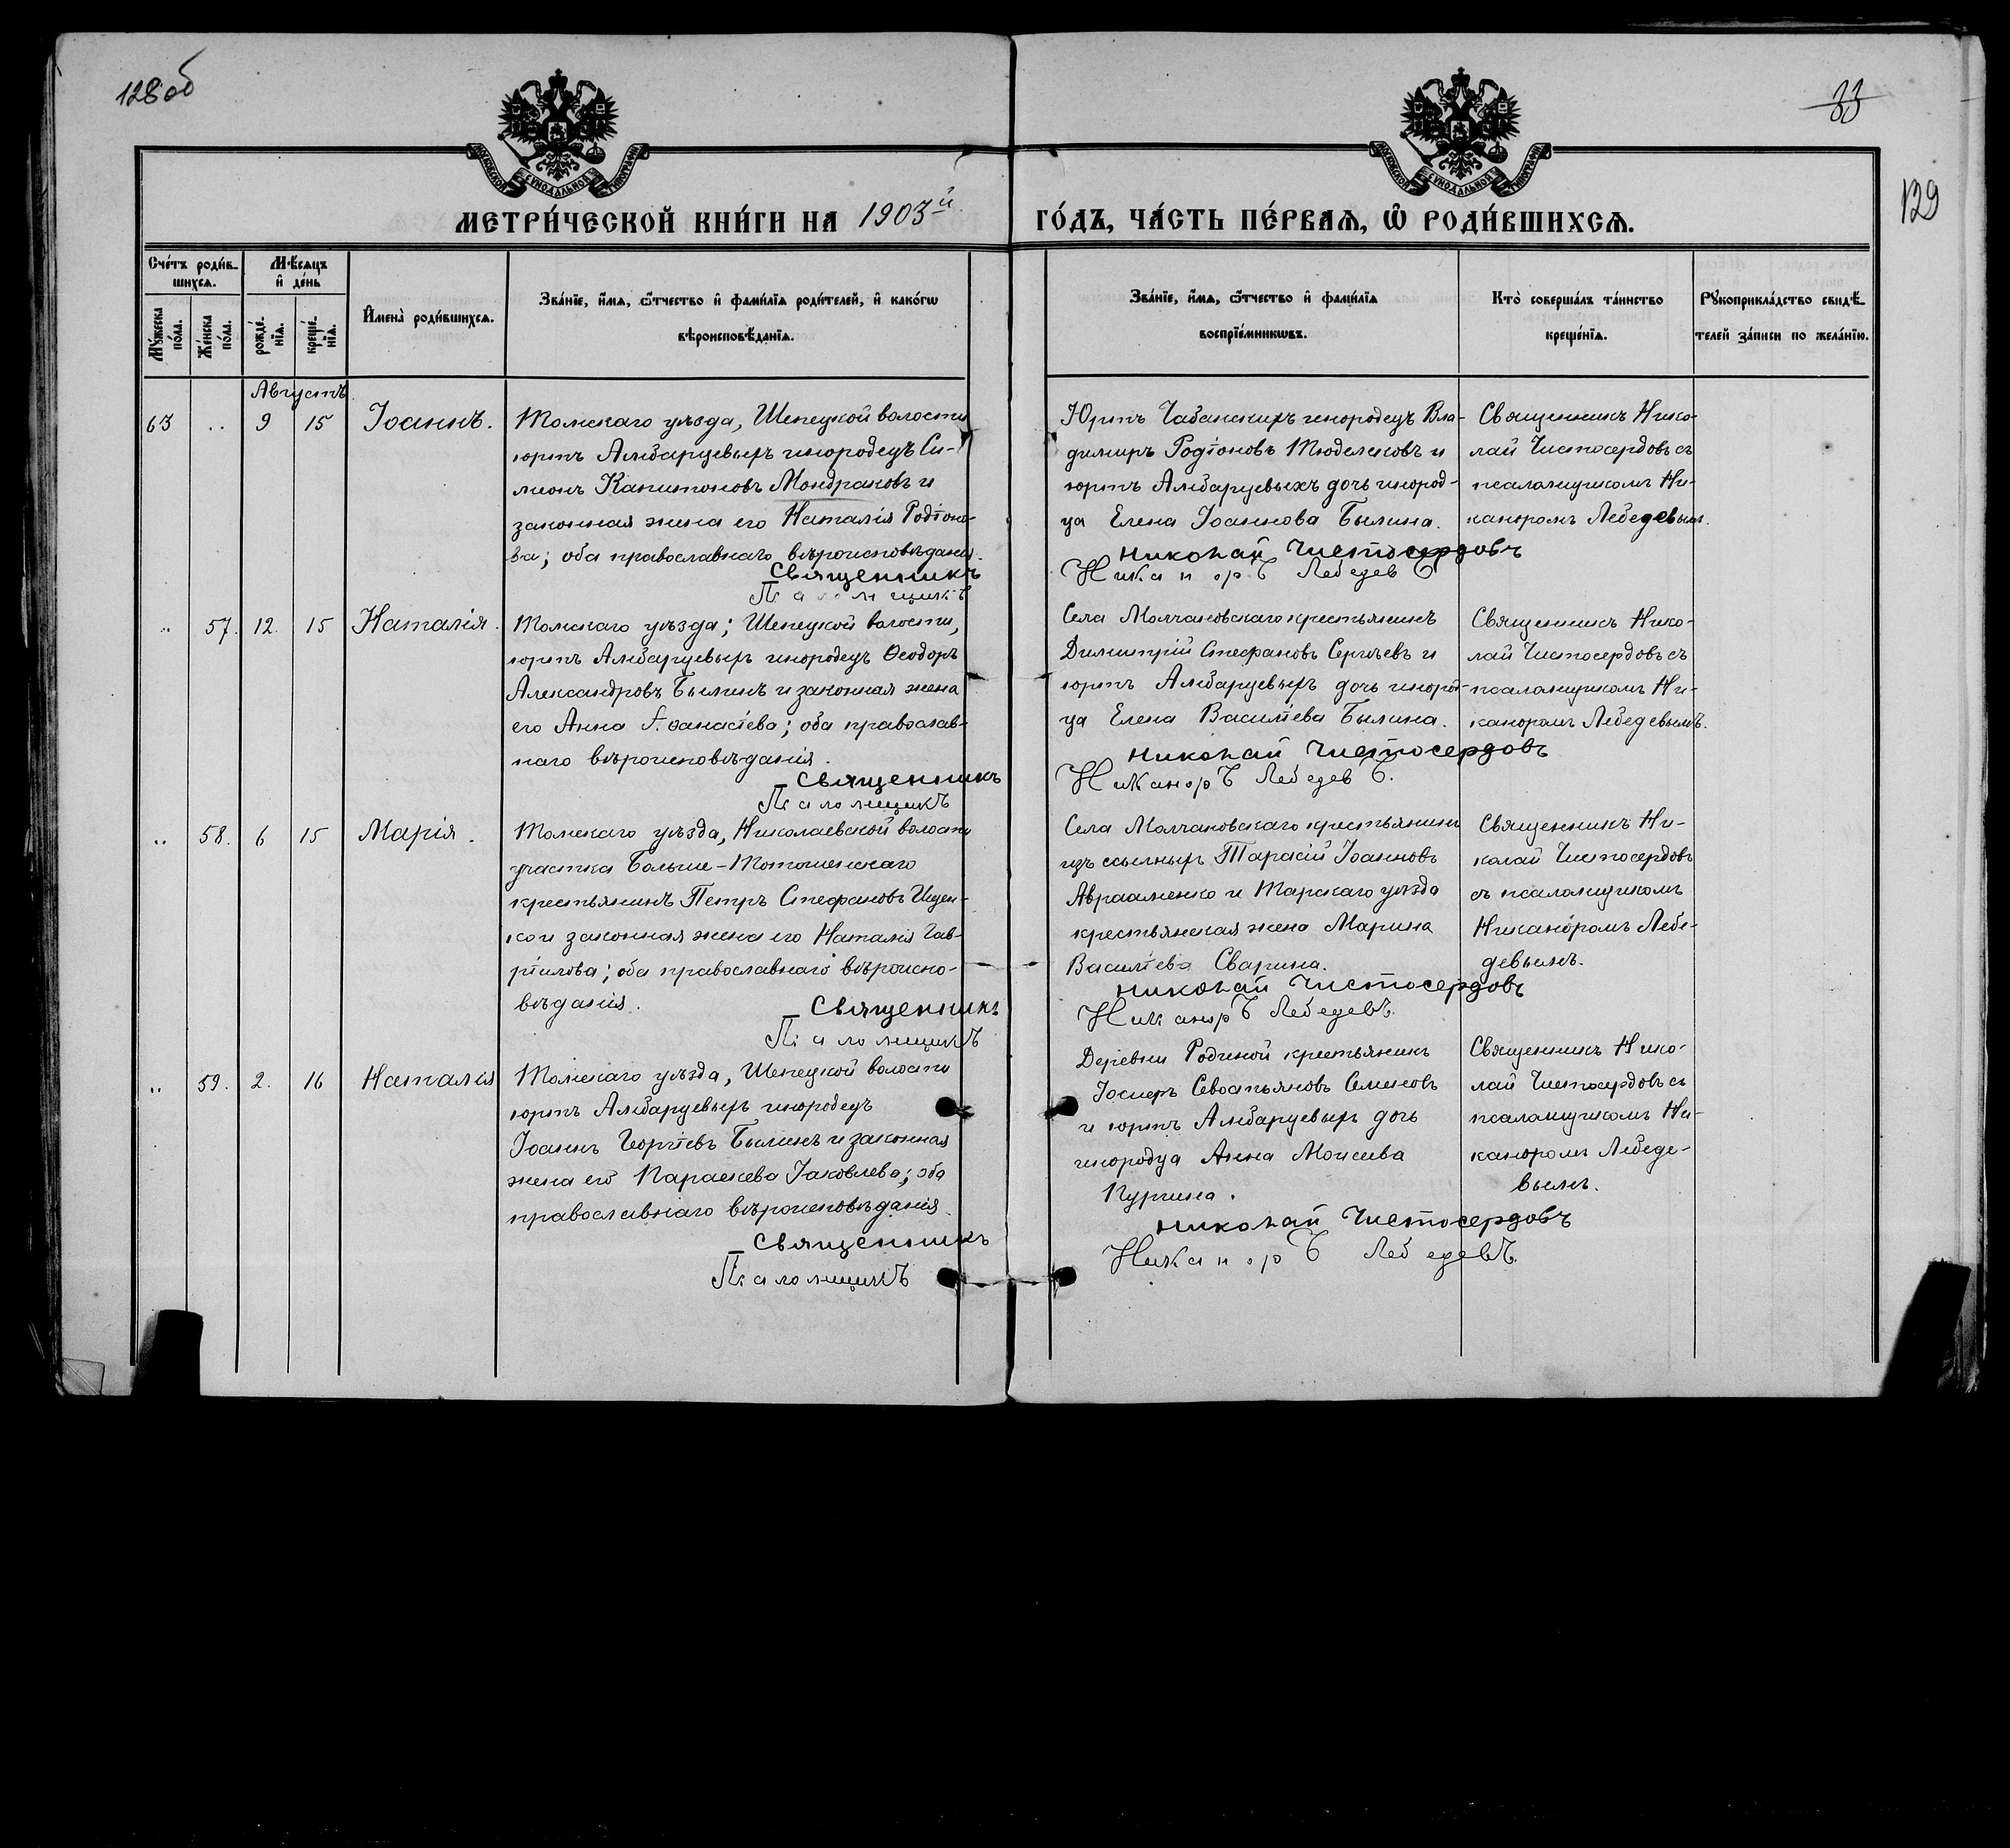 128 об
33
129
МОСКОВСКОЙ СѴНОДАЛЬНОЙ ТИПОГРАФІИ
МОСКОВСКОЙ СѴНОДАЛЬНОЙ ТИПОГРАФІИ
МЕТРИ́ЧЕСКОЙ КНИ́ГИ НА 1903-й
ГО́ДЪ, ЧА́СТЬ ПЕ́РВАѦ, Ѡ҆ РОДИ́ВШИХСѦ.
Сче́тъ роди́в-
шихсѧ.
Мꙋ́жеска по́ла.
Же́нска по́ла.
Мѣ́сѧцъ
и҆ де́нь
рожде́-нїѧ.
креще́-нїѧ.
И҆мена̀ роди́вшихсѧ.
Зва́нїе, и҆́мѧ, ѻ҆́тчество и҆ фами́лїѧ роди́телей, и҆ како́гѡ
вѣроисповѣ́данїѧ.
Зва́нїе, и҆́мѧ, ѻ҆́тчество и҆ фами́лїѧ
воспрїе́мникѡвъ.
Кто̀ соверша́лъ та́инство
креще́нїѧ.
Рꙋкоприкла́дство свидѣ́-
телей за́писи по жела́нїю.
Августъ.
63 .. 9 15 Іоаннъ.
Томскаго уѣзда, Шепецкой волости
юртъ Амбарцевыхъ инородецъ Си-
меонъ Капитоновъ Мондраковъ и
законная жена его Наталія Родіоно-
ва; оба православнаго вѣроисповѣданія.
Священникъ
Псаломщикъ
Юртъ Чабанскихъ инородецъ Вла-
димиръ Родіоновъ Тюделековъ и
юртъ Амбарцевыхъ дочь инород-
ца Елена Іоаннова Былина.
Николай Чистосердовъ
Никаноръ Лебедевъ
Священникъ Нико-
лай Чистосердовъ съ
псаломщикомъ Ни-
каноромъ Лебедевымъ.
.. 57. 12. 15 Наталія.
Томскаго уѣзда; Шепецкой волости,
юртъ Амбарцевыхъ инородецъ Ѳеодоръ
Александровъ Былинъ и законная жена
его Анна Аѳанасіева; оба православ-
наго вѣроисповѣданія.
Священникъ
Псаломщикъ
Села Молчановскаго крестьянинъ
Димитрій Стефановъ Сергѣевъ и
юртъ Амбарцевыхъ дочь инород-
ца Елена Василіева Былина.
Николай Чистосердовъ
Никаноръ Лебедевъ.
Священникъ Нико-
лай Чистосердовъ съ
псаломщикомъ Ни-
каноромъ Лебедевымъ.
.. 58. 6 15 Марія.
Томскаго уѣзда, Николаевской волости
участка Больше-Тотошенскаго
крестьянинъ Петръ Стефановъ Ищен-
ко и законная жена его Наталія Гав-
ріилова; оба православнаго вѣроиспо-
вѣданія.
Священникъ
Псаломщикъ
Села Молчановскаго крестьянинъ
изъ ссыльныхъ Тарасій Іоанновъ
Авраменко и Тарскаго уѣзда
крестьянская жена Марина
Василіева Сварина.
Николай Чистосердовъ
Никаноръ Лебедевъ.
Священникъ Ни-
колай Чистосердовъ
съ псаломщикомъ
Никаноромъ Лебе-
девымъ.
.. 59. 2. 16 Наталія
Томскаго уѣзда, Шепецкой волости
юртъ Амбарцевыхъ инородецъ
Іоаннъ Георгіевъ Былинъ и законная
жена его Параскева Іаковлева; оба
православнаго вѣроисповѣданія.
Священникъ
Псаломщикъ
Деревни Родиной крестьянинъ
Іосифъ Севостьяновъ Семеновъ
и юртъ Амбарцевыхъ дочь
инородца Анна Моисеева
Пургина.
Николай Чистосердовъ
Никаноръ Лебедевъ.
Священникъ Нико-
лай Чистосердовъ съ
псаломщикомъ Ни-
каноромъ Лебеде-
вымъ.